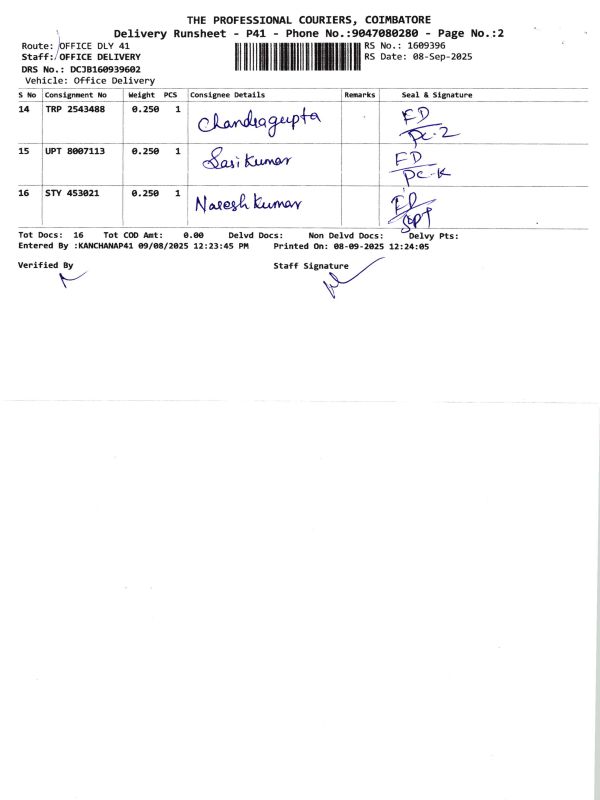 THE PROFESSIONAL COURIERS, COIMBATORE
Delivery Runsheet - P41 - Phone No.:9047080280 - Page No.:2
Route: OFFICE DLY 41 RS No.: 1609396
Staff: OFFICE DELIVERY RS Date: 08-Sep-2025
DRS No.: DCJB160939602
Vehicle: Office Delivery
S No Consignment No Weight PCS Consignee Details Remarks Seal & Signature
14 TRP 2543488 0.250 1 Chandragupta FD PC-2
15 UPT 8007113 0.250 1 Sasikumar FD PC-K
16 STY 453021 0.250 1 Naresh Kumar FD
Tot Docs: 16 Tot COD Amt: 0.00 Delvd Docs: Non Delvd Docs: Delvy Pts:
Entered By :KANCHANAP41 09/08/2025 12:23:45 PM Printed On: 08-09-2025 12:24:05
Verified By Staff Signature